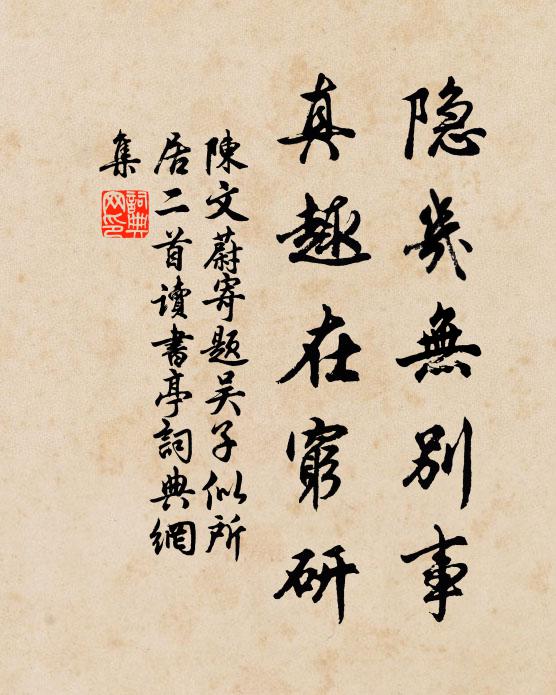 隐几無別事
真趣在窮研
陳文蔚寄題吴子似所
居二首讀書亭詞典網
集
詞典
网印